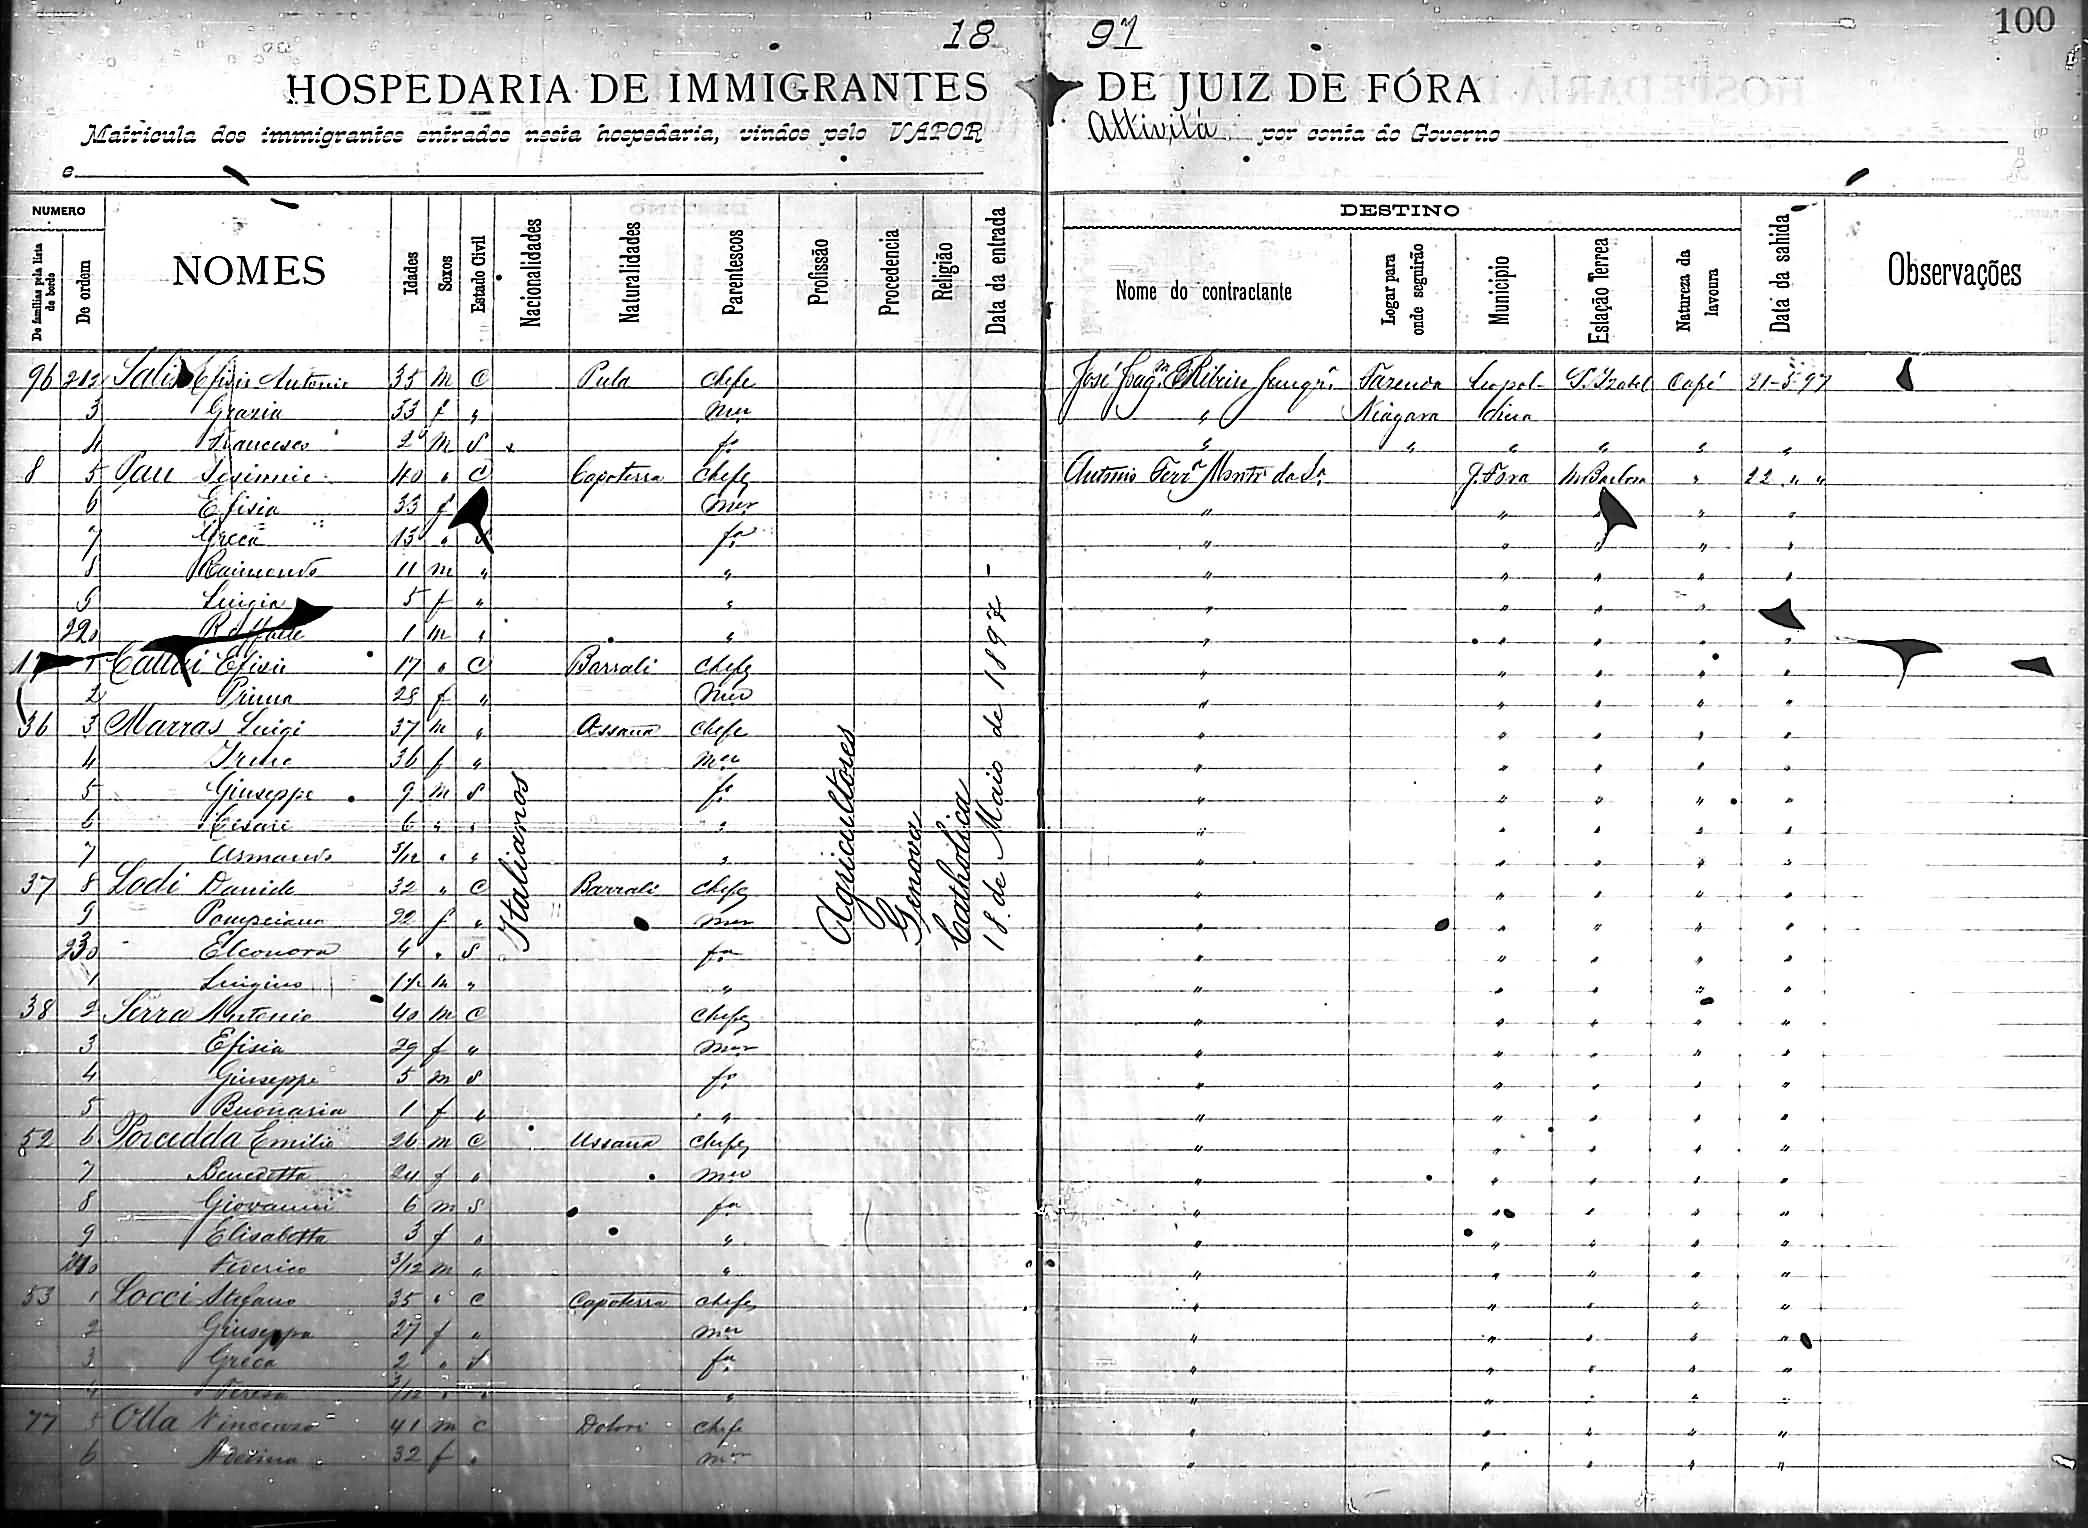 100
18 97
HOSPEDARIA DE IMMIGRANTES DE JUIZ DE FÓRA
Matricula dos immigrantes entrados nesta hospedaria, vindos pelo VAPOR Attivitá por conta do Governo
e
NUMERO
De familias pela lista de bordo
De ordem
NOMES
Idades
Sexos
Estado Civil
Nacionalidades
Naturalidades
Parentescos
Profissão
Procedencia
Religião
Data da entrada
DESTINO
Nome do contractante
Logar para onde seguirão
Municipio
Estação Terrea
Natureza da lavoura
Data da sahida
Observações
96 212 Salis Efisio Antonio 35 m C Pula Chefe José Joaqm Ribeiro Fazenda Leopol- S. Izabel Café 21-5-97
3 Grazia 33 f " mer " Niagara dina
4 Francesco 2 m S fo " " " " " "
8 5 Pau Sisinnio 40 " C Capoterra Chefe Antonio Ferra Montro da Sa J. Fora M Barbosa " 22 " "
6 Efisia 33 f mer " " " " "
7 Greca 13 " S fa " " " " "
8 Raimondo 11 m " " " " " " "
9 Luigia 5 f " " " " " " "
220 Raffaele 1 m " " " " " " "
17 1 Efisio 17 " C Barrali Chefe " " " " "
2 Prima 28 f " mer " " " " "
36 3 Marras Luigi 37 m " Assana Chefe " " " " "
4 Irene 36 f " mer " " " " "
5 Giuseppe 9 m S fo " " " " "
6 Cesare 6 " " " " " " " "
7 Armando 3/12 " " " " " " " "
37 8 Lodi Daniele 32 " C Barrali Chefe " " " " "
9 Pompeiana 22 f " mer " " " " "
230 Eleonora 4 " S fa " " " " "
1 Luigino m " " " " " " "
38 2 Serra Antonio 40 m C Chefe " " " " "
3 Efisia 29 f " mer " " " " "
4 Giuseppe 5 m S fo " " " " "
5 Buonaria 1 f " " " " " " "
52 6 Porcedda Emilio 26 m C Ussana Chefe " " " " "
7 Benedetta 24 f " mer " " " " "
8 Giovanni 6 m S fo " " " " "
9 Elisabetta 3 f " " " " " " "
240 Federico 3/12 m " " " " " " "
53 1 Locci Stefano 35 " C Capoterra Chefe " " " " "
2 Giuseppa 27 f " mer " " " " "
3 Greca 2 " S fa " " " " "
4 Teresa 3/12 " " " " " " " "
77 5 Olla Vincenzo 41 m C Dolori Chefe " " " " "
6 32 f " mer " " " " "
Italianos
Agricultores
Genova
Catholica
18 de Maio de 1897 -